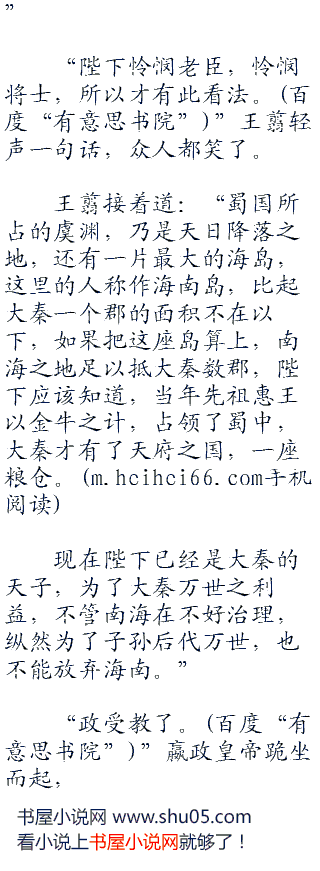 ”
“陛下怜悯老臣，怜悯
将士，所以才有此看法。(百
度“有意思书院”)”王翦轻
声一句话，众人都笑了。
王翦接着道：“蜀国所
占的虞渊，乃是天日降落之
地，还有一片最大的海岛，
这里的人称作海南岛，比起
大秦一个郡的面积不在以
下，如果把这座岛算上，南
海之地足以抵大秦数郡，陛
下应该知道，当年先祖惠王
以金牛之计，占领了蜀中，
大秦才有了天府之国，一座
粮仓。(m.hcihci66.com手机
阅读)
现在陛下已经是大秦的
天子，为了大秦万世之利
益，不管南海在不好治理，
纵然为了子孙后代万世，也
不能放弃海南。”
“政受教了。(百度“有
意思书院”)”嬴政皇帝跪坐
而起，
书屋小说网 www.shu05.com
看小说上书屋小说网就够了！